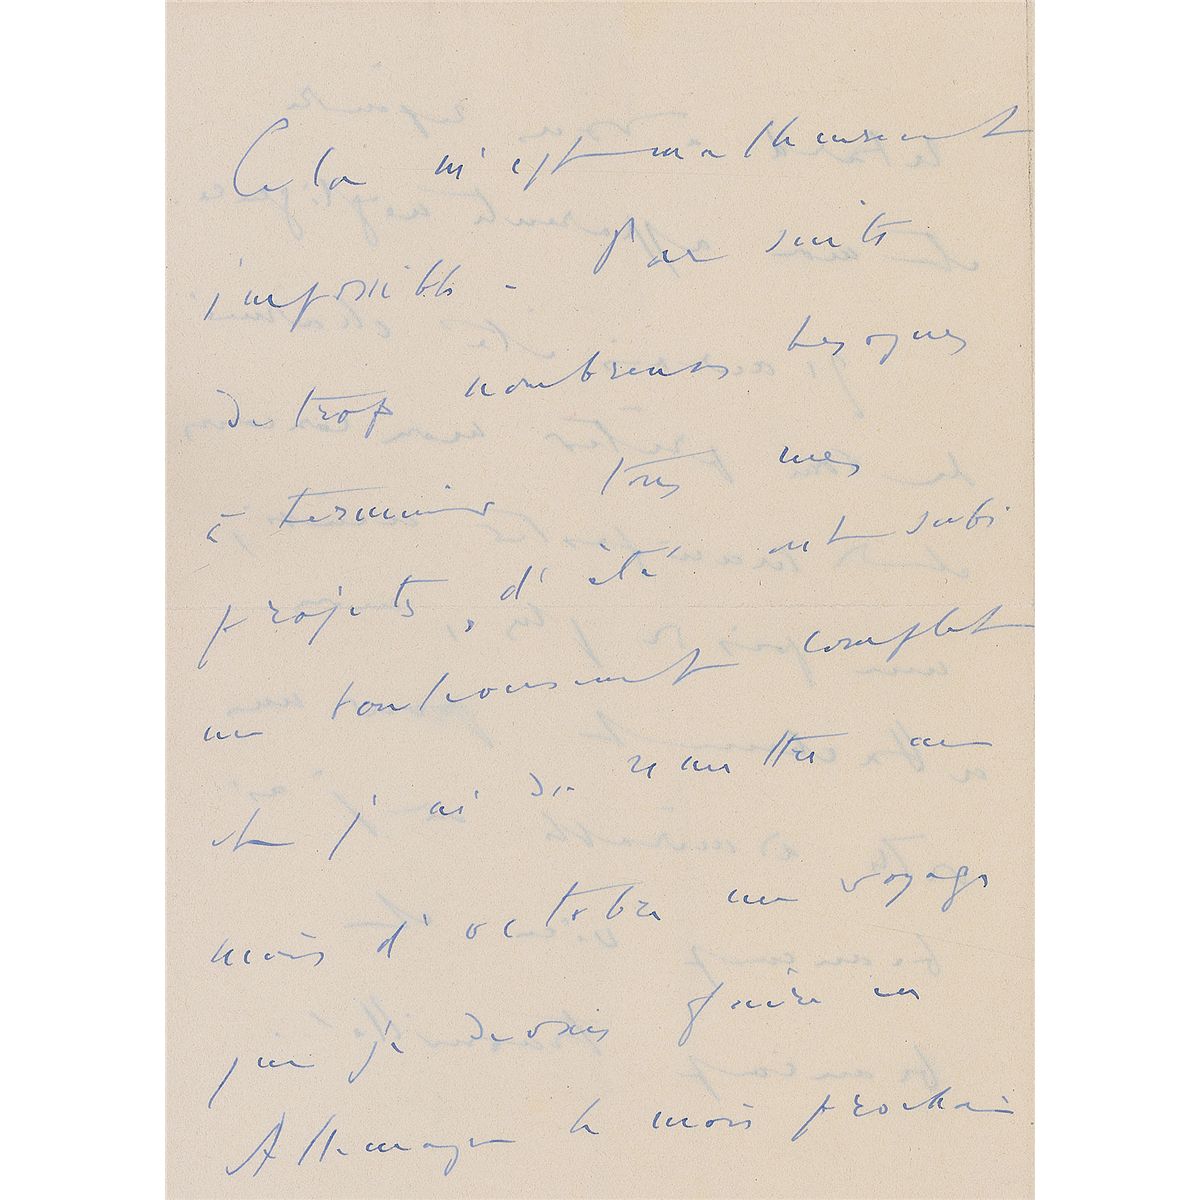 Cela m'est malheureusement
impossible - Par suite
de trop nombreuses besognes
à terminer tous mes
projets, d'été ont subi
un bouleversement complet
et j'ai dû remettre au
mois d'octobre un voyage
que je devais faire en
Allemagne le mois prochain